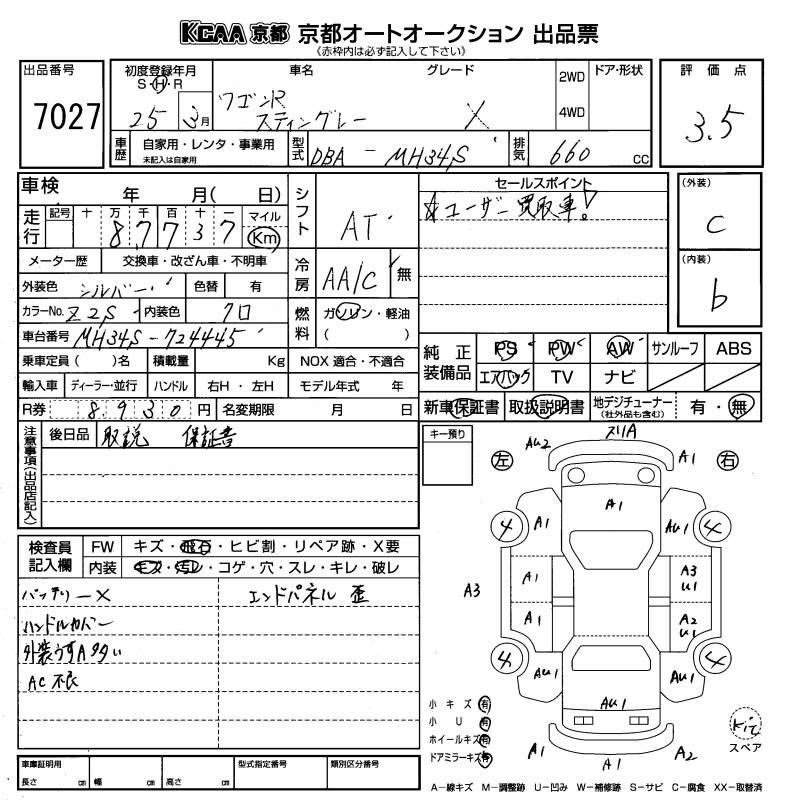 KCAA 京都 京都オートオークション 出品票
《赤枠内は必ず記入して下さい》
出品番号
7027
初度登録年月
S・H・R
25 3月
車名
グレード
ワゴンR
スティングレー
X
2WD
4WD
ドア・形状
評価点
3.5
車歴
自家用・レンタ・事業用
未記入は自家用
型式
DBA - MH34S
排気
660 cc
車検
年 月( 日)
走行
記号 十 万 千 百 十 一 マイル
8 7 7 3 7 Km
メーター歴 交換車・改ざん車・不明車
外装色 シルバー 色替 有
カラーNo. Z2S 内装色 クロ
車台番号 MH34S-724445
乗車定員( )名 積載量 Kg
輸入車 ディーラー・並行 ハンドル 右H・左H
R券 8930円 名変期限 月 日
シフト
AT
冷房
AA/C 無
燃料
ガソリン・軽油
( )
NOX 適合・不適合
モデル年式 年
セールスポイント
☆ユーザー買取車!
(外装)
C
(内装)
b
純正装備品
PS PW AW サンルーフ ABS
エアバッグ TV ナビ
新車保証書 取扱説明書 地デジチューナー
(社外品も含む)
有・無
注意事項(出品店記入)
後日品 取説 保証書
キー預り
検査員記入欄
FW キズ・飛石・ヒビ割・リペア跡・X要
内装 キズ・汚レ・コゲ・穴・スレ・キレ・破レ
バッテリーX
ハンドルカバー
外装うすA多い
AC不良
エンドパネル 歪
左
右
AU2
ヌリA
A1
A1
4
A1
AU1
4
A3
A1
A3
U1
A1
A2
U1
4
AU1
AU1
4
AU1
A1
A1
A2
小キズ 有
小U 有
ホイールキズ 有
ドアミラーキズ 有
Kit
スペア
車庫証明用
長さ cm 幅 cm 高さ cm
型式指定番号
類別区分番号
A-線キズ M-調整跡 U-凹み W-補修跡 S-サビ C-腐食 XX-取替済